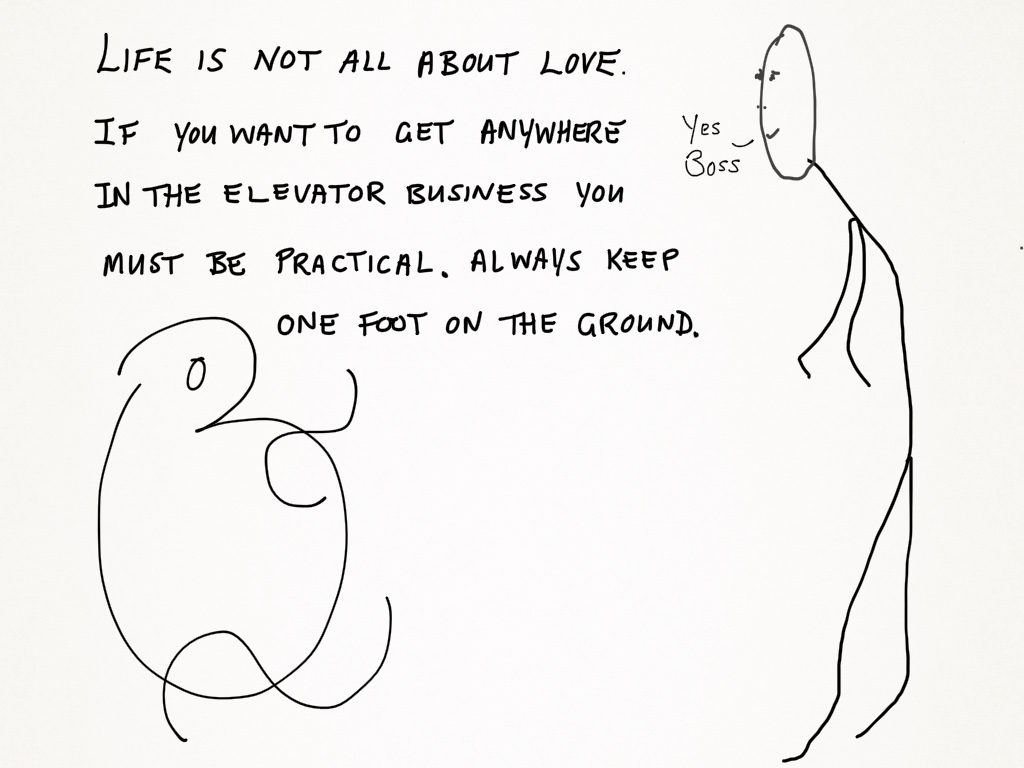 LIFE IS NOT ALL ABOUT LOVE.
IF YOU WANT TO GET ANYWHERE
IN THE ELEVATOR BUSINESS YOU
MUST BE PRACTICAL. ALWAYS KEEP
ONE FOOT ON THE GROUND.
Yes
Boss